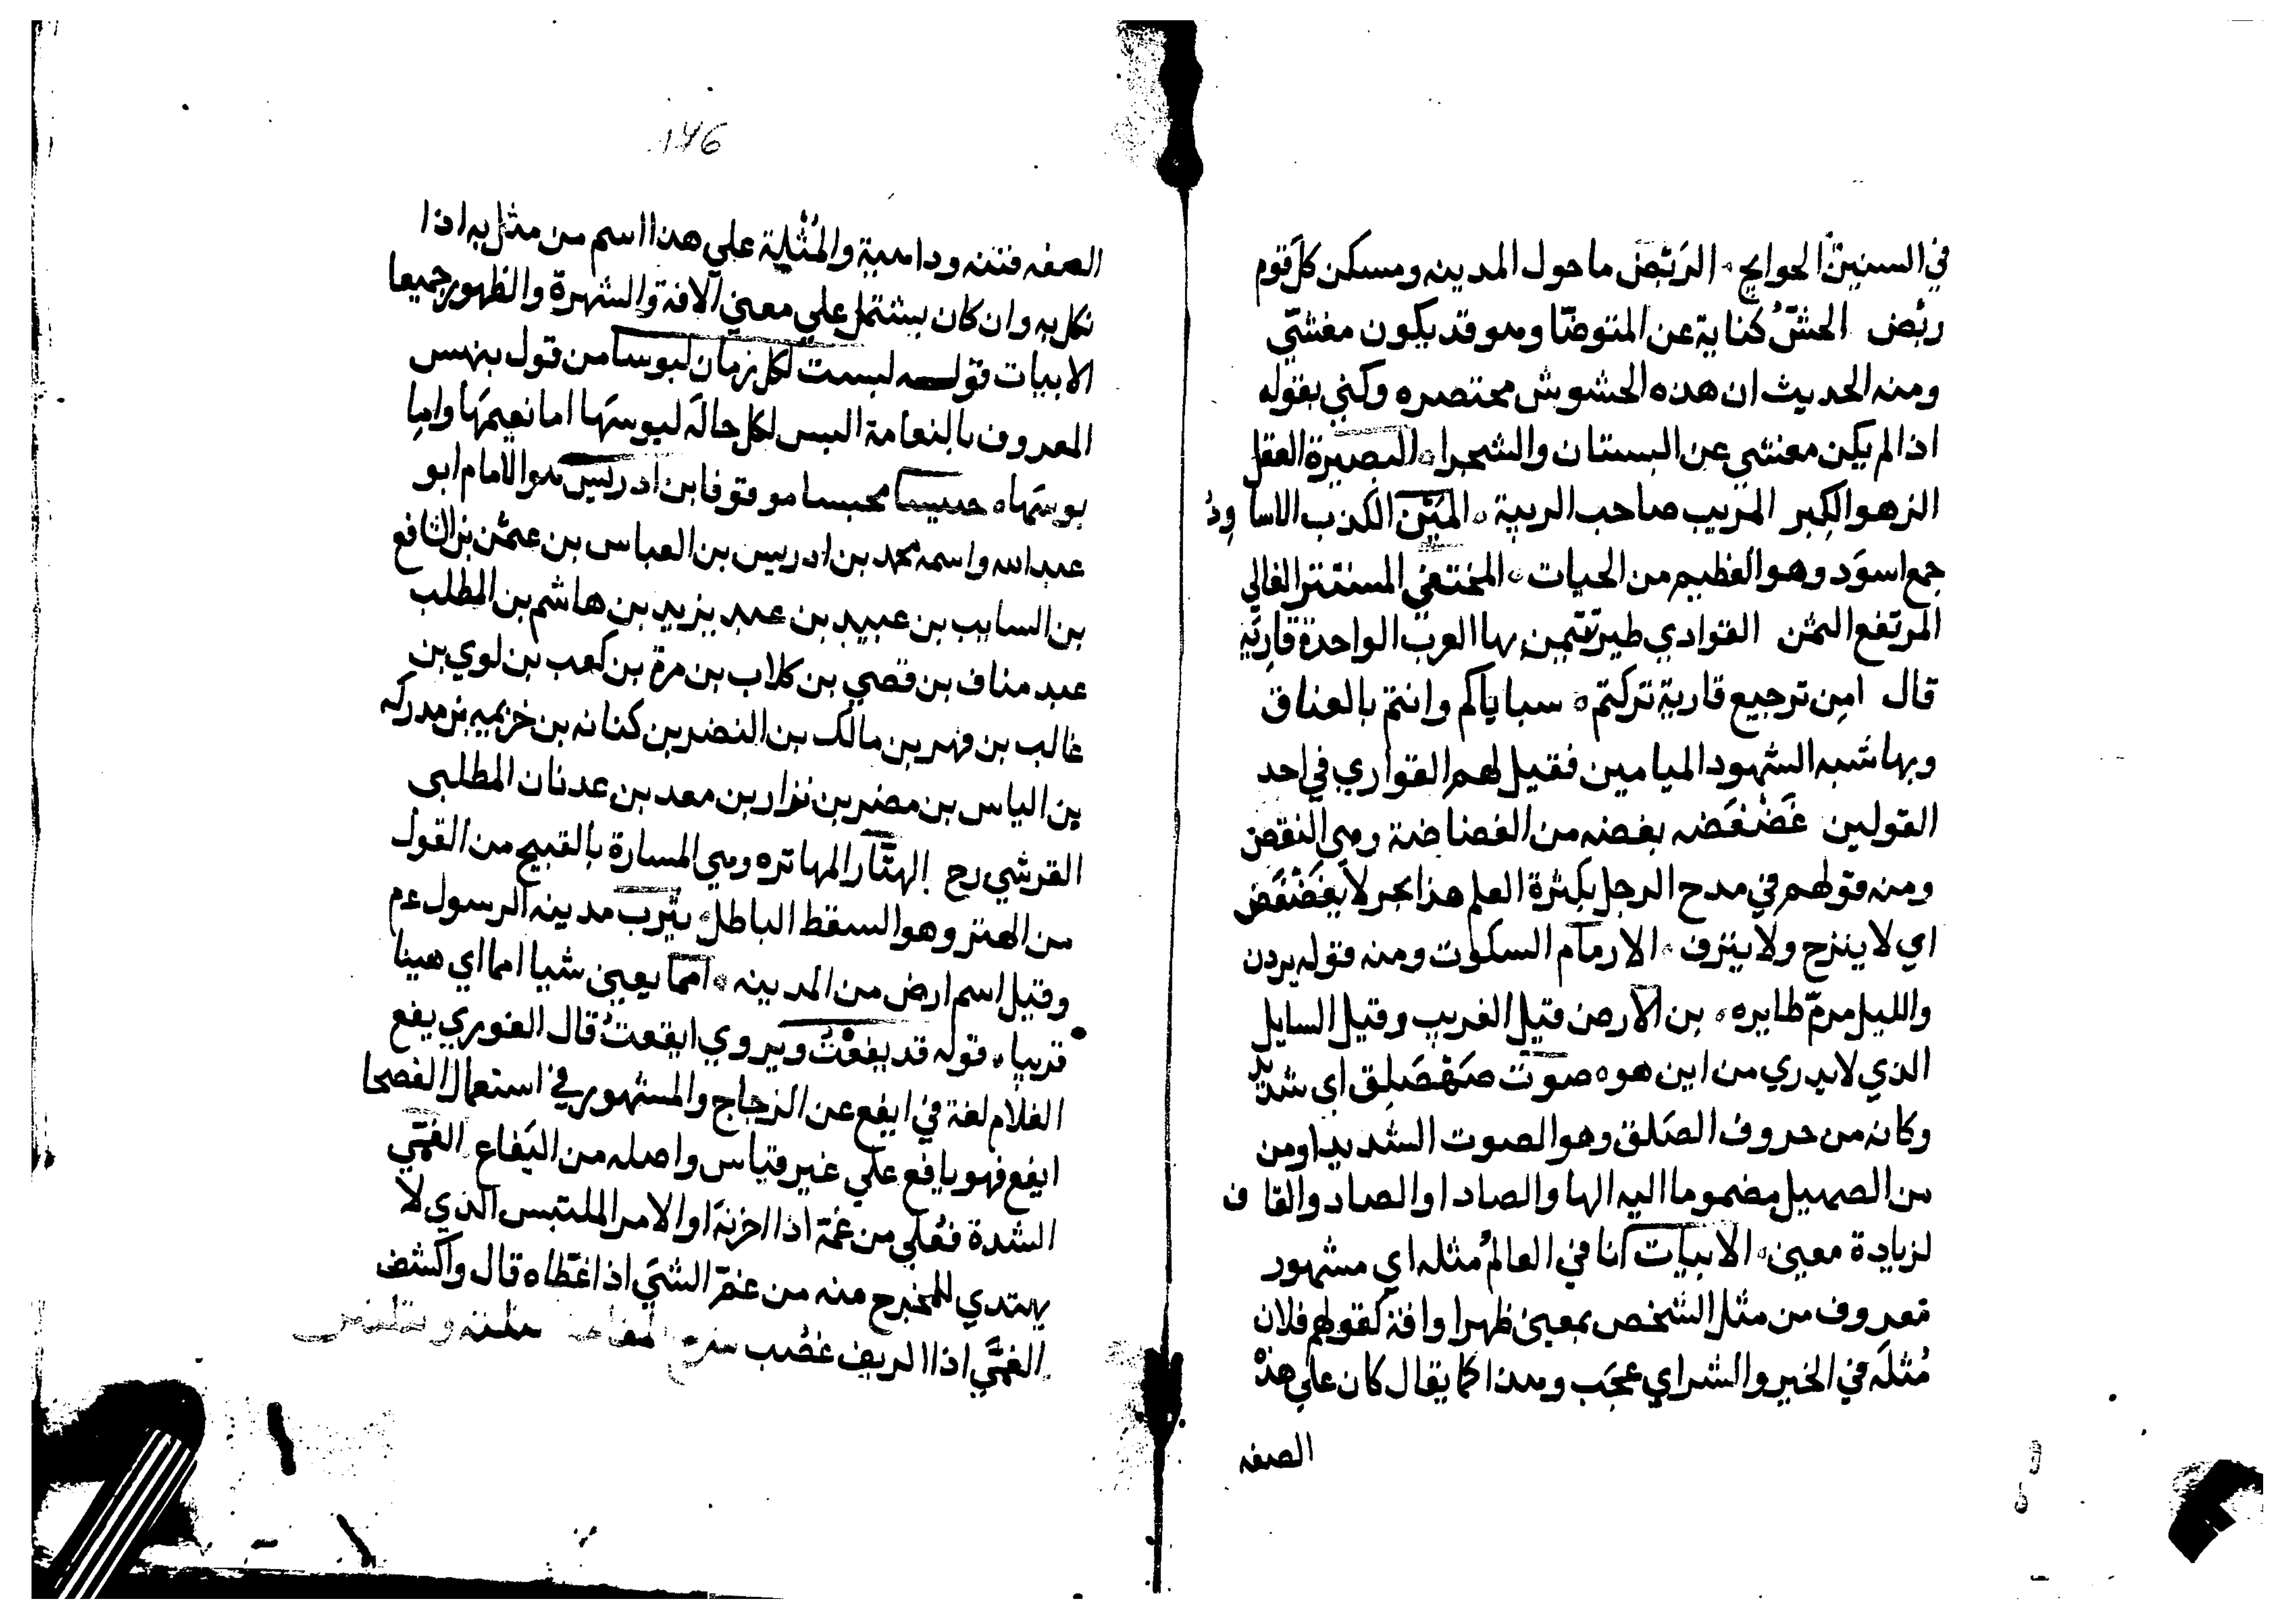 في السنين الحوايج ه الرَبَض ما حول المدينه ومسكن كل قوم
ربَض الحشّ كناية عن المتوضّا وهو قد يكون مغشّي
ومنه الحديث ان هذه الحشوش محتضره وكني بقوله
اذا لم يكن مغشي عن البستان والشجرا ه البصيرة العقل
الزهو الكبر المريب صاحب الريبة ه المَيْن الكذب الاساوِدُ
جمع اسوَد وهو العظيم من الحيات ه المختفي المستتر الغالي
المرتفع الثمن القواري طير تتيمن بها العرب الواحدة قارِيَة
قال امِن ترجيع قارية تركتم ه سباياكم وانتم بالعناق
وبها شبه الشهود الميامين فقيل لهم القواري في احد
القولين غَضْغَضَه بغضه من الغضاضة وهي النقض
ومنه قولهم في مدح الرجل بكثرة العلم هذا بحر لا يغَضْغَض
اي لا ينزح ولا ينزف ه الارمام السكوت ومنه قوله يردن
والليل مرمّ طايره ه بن الارض قيل الغريب وقيل السايل
الذي لا يدري من اين هو ه صوت صَهْصَلِق اي شديد
وكانه من حروف الصَلق وهو الصوت الشديد او من
من الصهيل مضموما اليه الها والصاد او الصاد والقاف
لزيادة معين ه الابيات انا في العالم مُثله اي مشهور
معروف من مثل الشخص بمعين ظهر او افة كقولهم فلان
مُثلَه في الخير والشر اي عجَب وهذا كما يقال كان علي هذه
الصفه
146
الصفه فتنه وداهية والمُثْلِة علي هذا اسم من مثل به اذا
نكل به وان كان يشتمل علي معني الافة والشهرة والظهور جميعا
الابيات قوله لبست لكل زمان لبوسا من قول بيهس
المعروف بالنعامة البس لكل حالَه لبوسَها اما نعيمَها واما
بوسَها ه حبيسا محبسا موقوفا بن ادريس هو الامام ابو
عبد الله واسمه محمد بن ادريس بن العباس بن عثمن بن الشافع
بن السايب بن عبيد بن عبد يزيد بن هاشم بن المطلب
عبد مناف بن قصي بن كلاب بن مرة بن كعب بن لوي بن
غالب بن فهر بن مالك بن النضر بن كنانه بن خزيمه بن مدركه
بن الياس بن مضر بن نزار بن معد بن عدنان المطلبي
القرشي رح الهتّار المهاتره وهي المسارة بالقبيح من القول
من الهتر وهو السقط الباطل ه يثرب مدينه الرسول عم
وقيل اسم ارض من المدينه ه امما يعيني شيا امما اي هينا
قريبا ه قوله قد يفعْتُ ويروي ايفعتُ قال الغوري يفع
الغلام لغة في ايفع عن الزجاج والمشهور في استعمال الفصحا
ايفع فهو يافع علي غير قياس واصله من اليَفاع الغمَّي
الشدة فعُلي من غمّة اذا احزنهَ او الامر الملتبس الذي لا
يهتدي للمخرج منه من غمّ الشيَ اذا غطّاه قال واكشف
الغمَّي اذا الريق عصُب